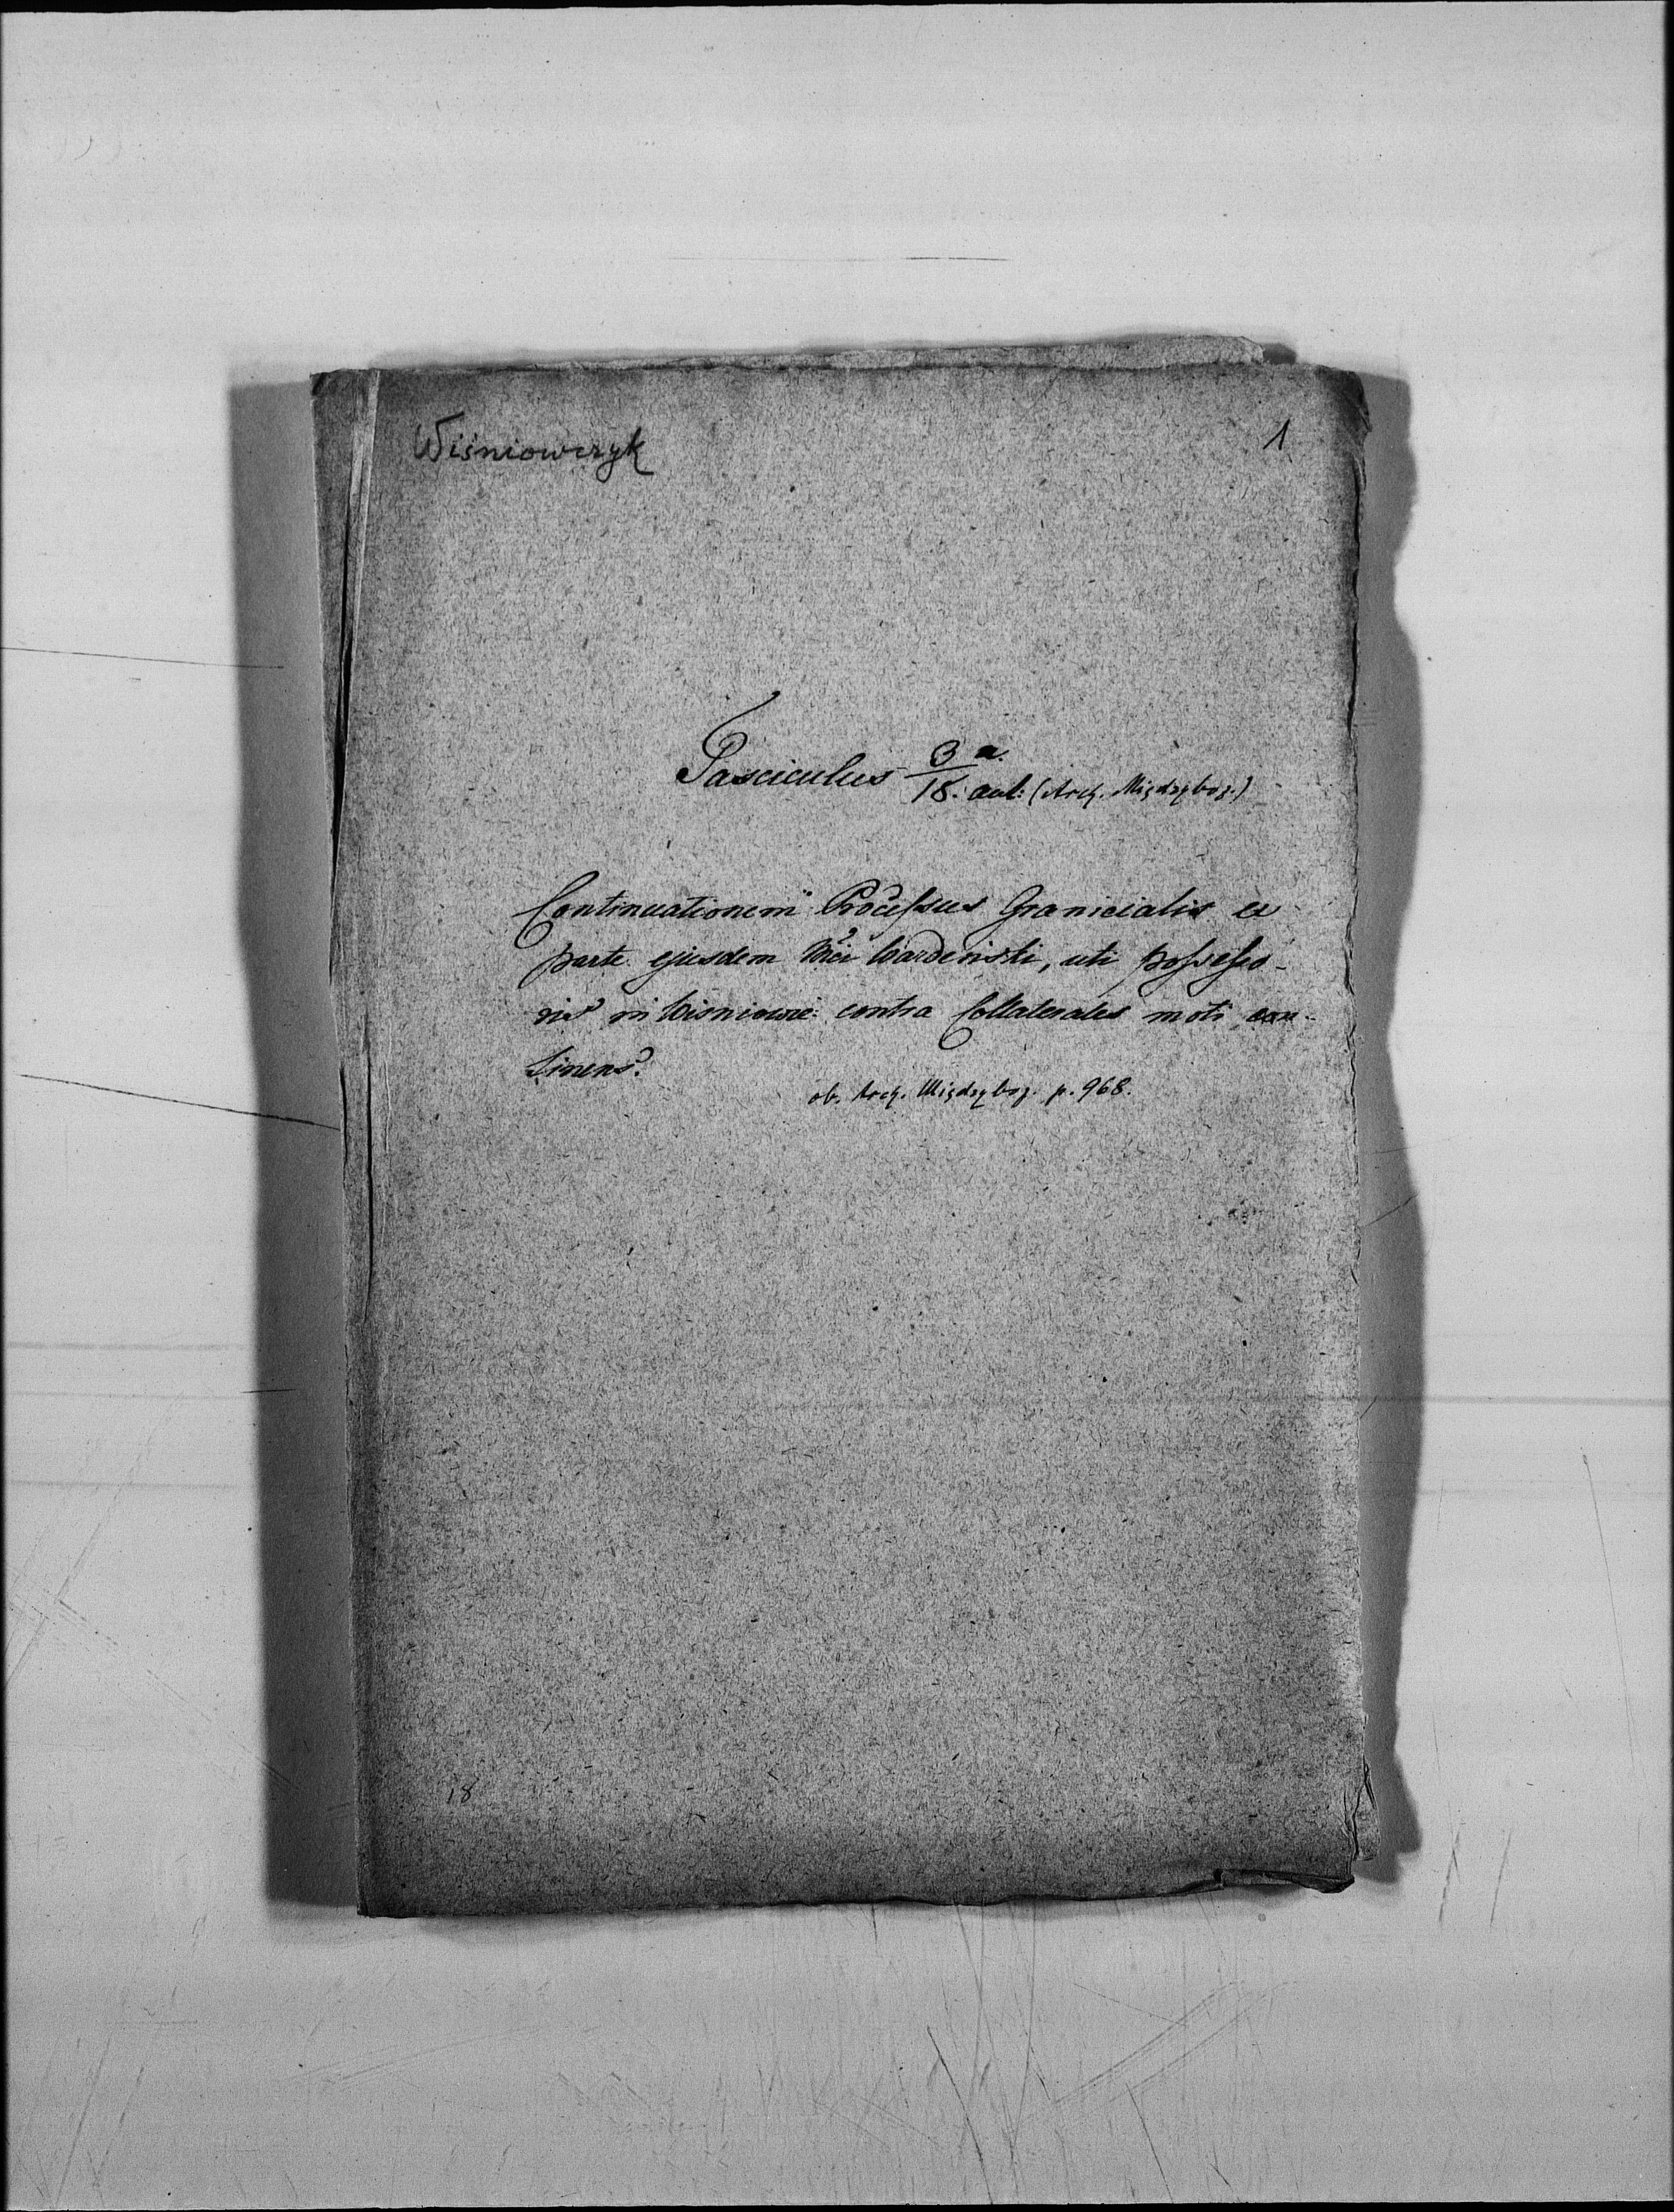 Wiśniowczyk
1
Fasciculus 3 a.
18. ant: (Arch. Międzyboz.)
Continuationem Processus Granicialis ex
parte ejusdem Mci Wardenski, uti possesso-
ris in Wisniowie: contra Collaterales moti, con-
tinens.
ob. Arch. Międzyboz. p. 968.
18